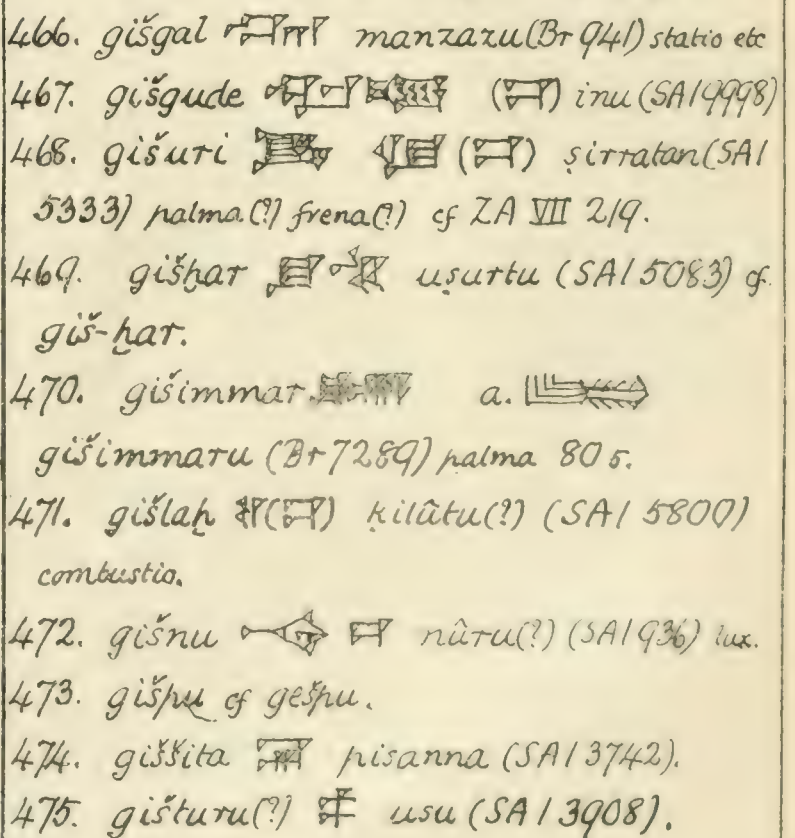 466. gišgal manzazu (Br 941) statio etc
467. gišgude (𒄑) inu (SAI 9998)
468. gišuri (𒄑) ṣirratan (SAI
5333) palma (?) frena (?) cf ZA VII 219.
469. gišḫar uṣurtu (SAI 5083) cf.
giš-ḫar.
470. gišimmar a.
gišimmaru (Br 7289) palma 805.
471. gišlaḫ (𒄑) ḳilûtu(?) (SAI 5800)
combustio.
472. gišnu 𒄑 nûru(?) (SAI 936) lux.
473. gišpu cf gešpu.
474. giššita pisanna (SAI 3742).
475. gišturu(?) usu (SAI 3908).